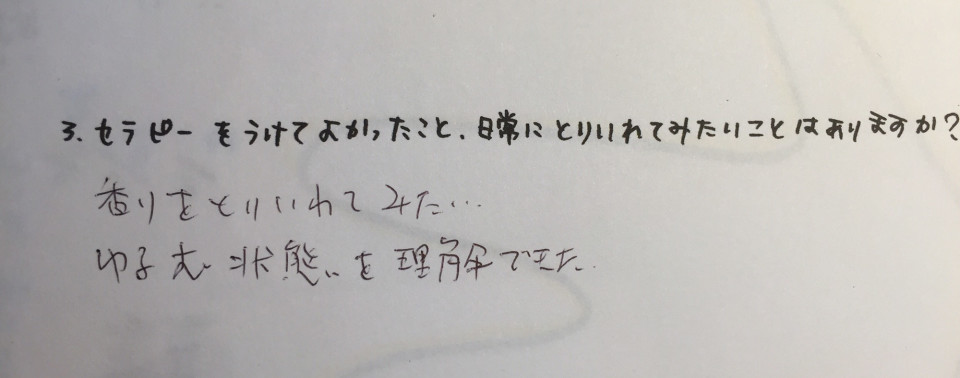 3. セラピーをうけてよかったこと、日常にとりいれてみたいことはありますか?
香りをとりいれてみたい…
状態を理解できた